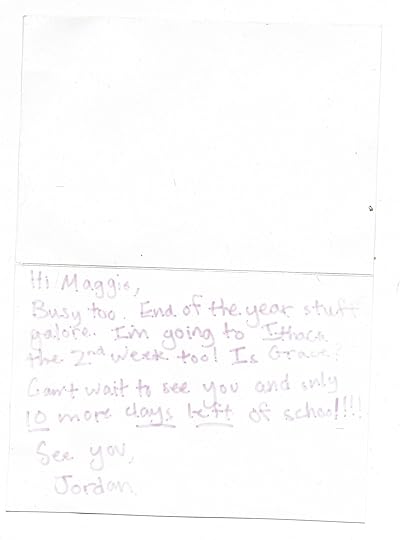 Hi Maggie,
Busy too. End of the year stuff
galore. I'm going to Ithaca
the 2nd week too! Is Grace?
Can't wait to see you and only
10 more days left of school!!!!
See you,
Jordan